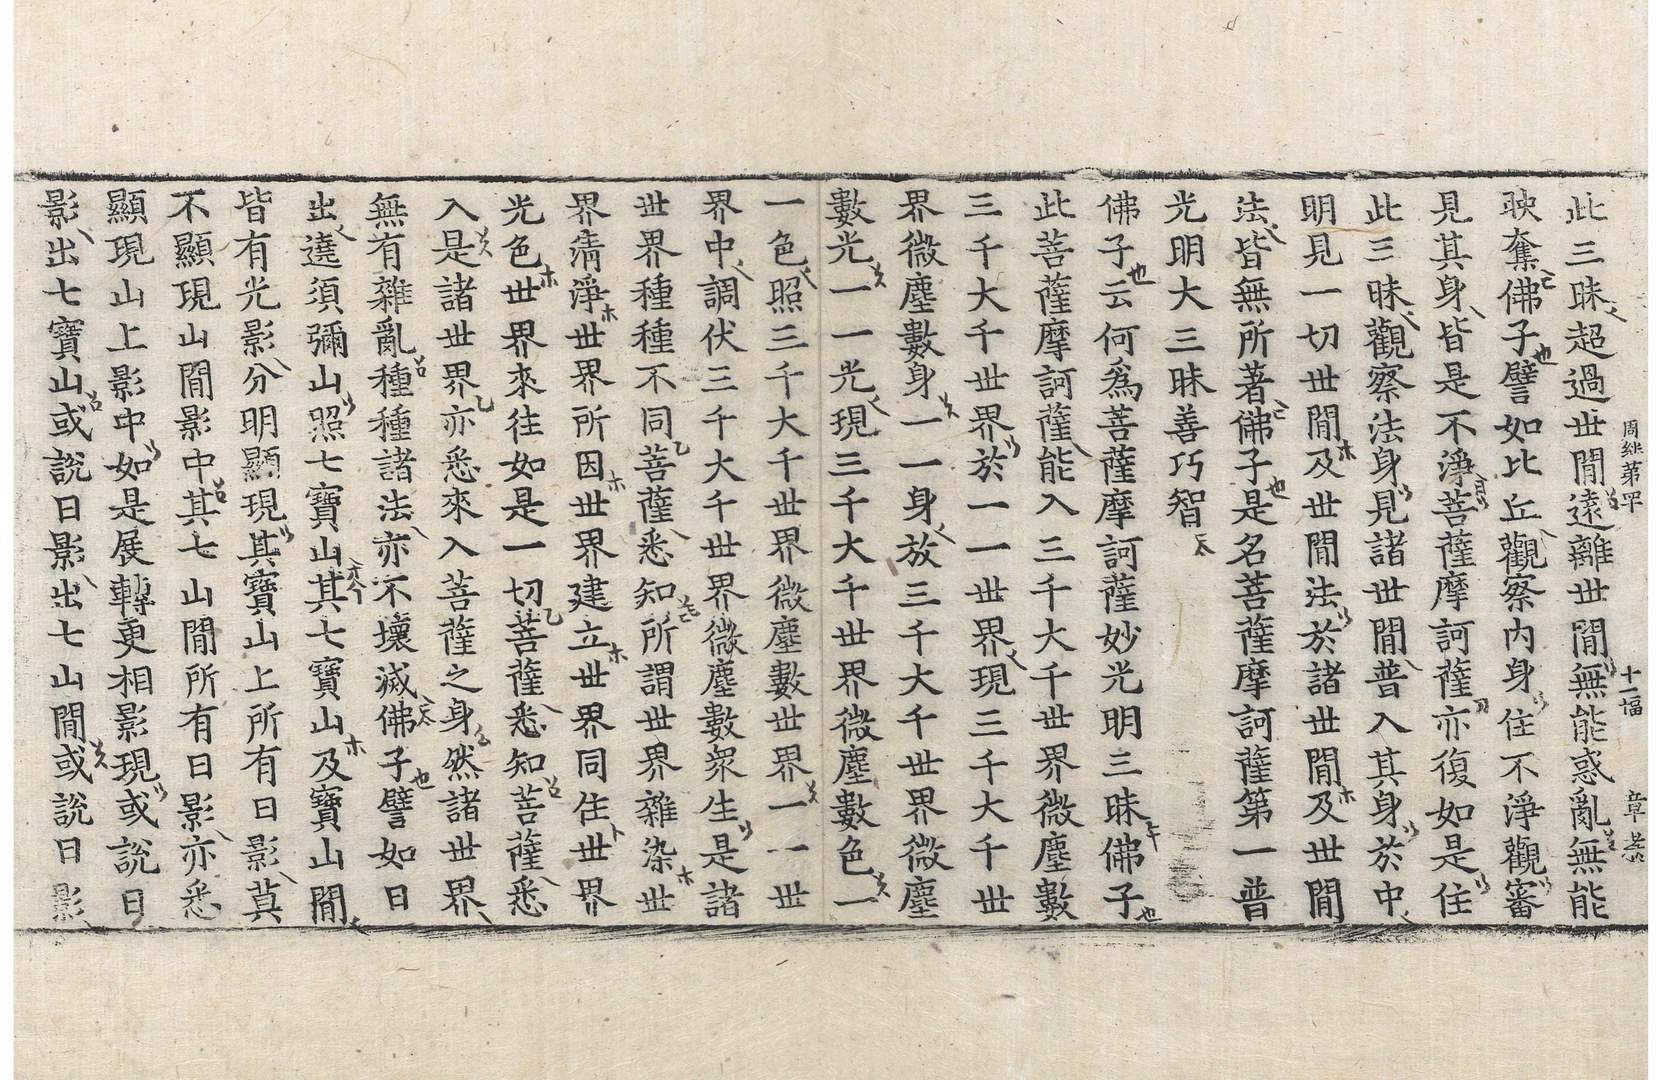 周経第
十一幅
章
此三昧超過世間遠離世間無能惑亂無能
映奪佛子譬如比丘觀察內身住不淨觀審
見其身皆是不淨菩薩摩訶薩亦復如是住
此三昧觀察法身見諸世間普入其身於中
明見一切世間及世間法於諸世間及世間
法皆無所著佛子是名菩薩摩訶薩第一普
光明大三昧善巧智
佛子云何爲菩薩摩訶薩妙光明三昧佛子
此菩薩摩訶薩能入三千大千世界微塵數
三千大千世界於一一世界現三千大千世
界微塵數身一一身放三千大千世界微塵
數光一一光現三千大千世界微塵數色一
一色照三千大千世界微塵數世界一一世
界中調伏三千大千世界微塵數衆生是諸
世界種種不同菩薩悉知所謂世界雜染世
界淸淨世界所因世界建立世界同住世界
光色世界來往如是一切菩薩悉知菩薩悉
入是諸世界亦悉來入菩薩之身然諸世界
無有雜亂種種諸法亦不壞滅佛子譬如日
出遶須彌山照七寶山其七寶山及寶山間
皆有光影分明顯現其寶山上所有日影莫
不顯現山間影中其七山間所有日影亦悉
顯現山上影中如是展轉更相影現或說日
影出七寶山或說日影出七山間或說日影